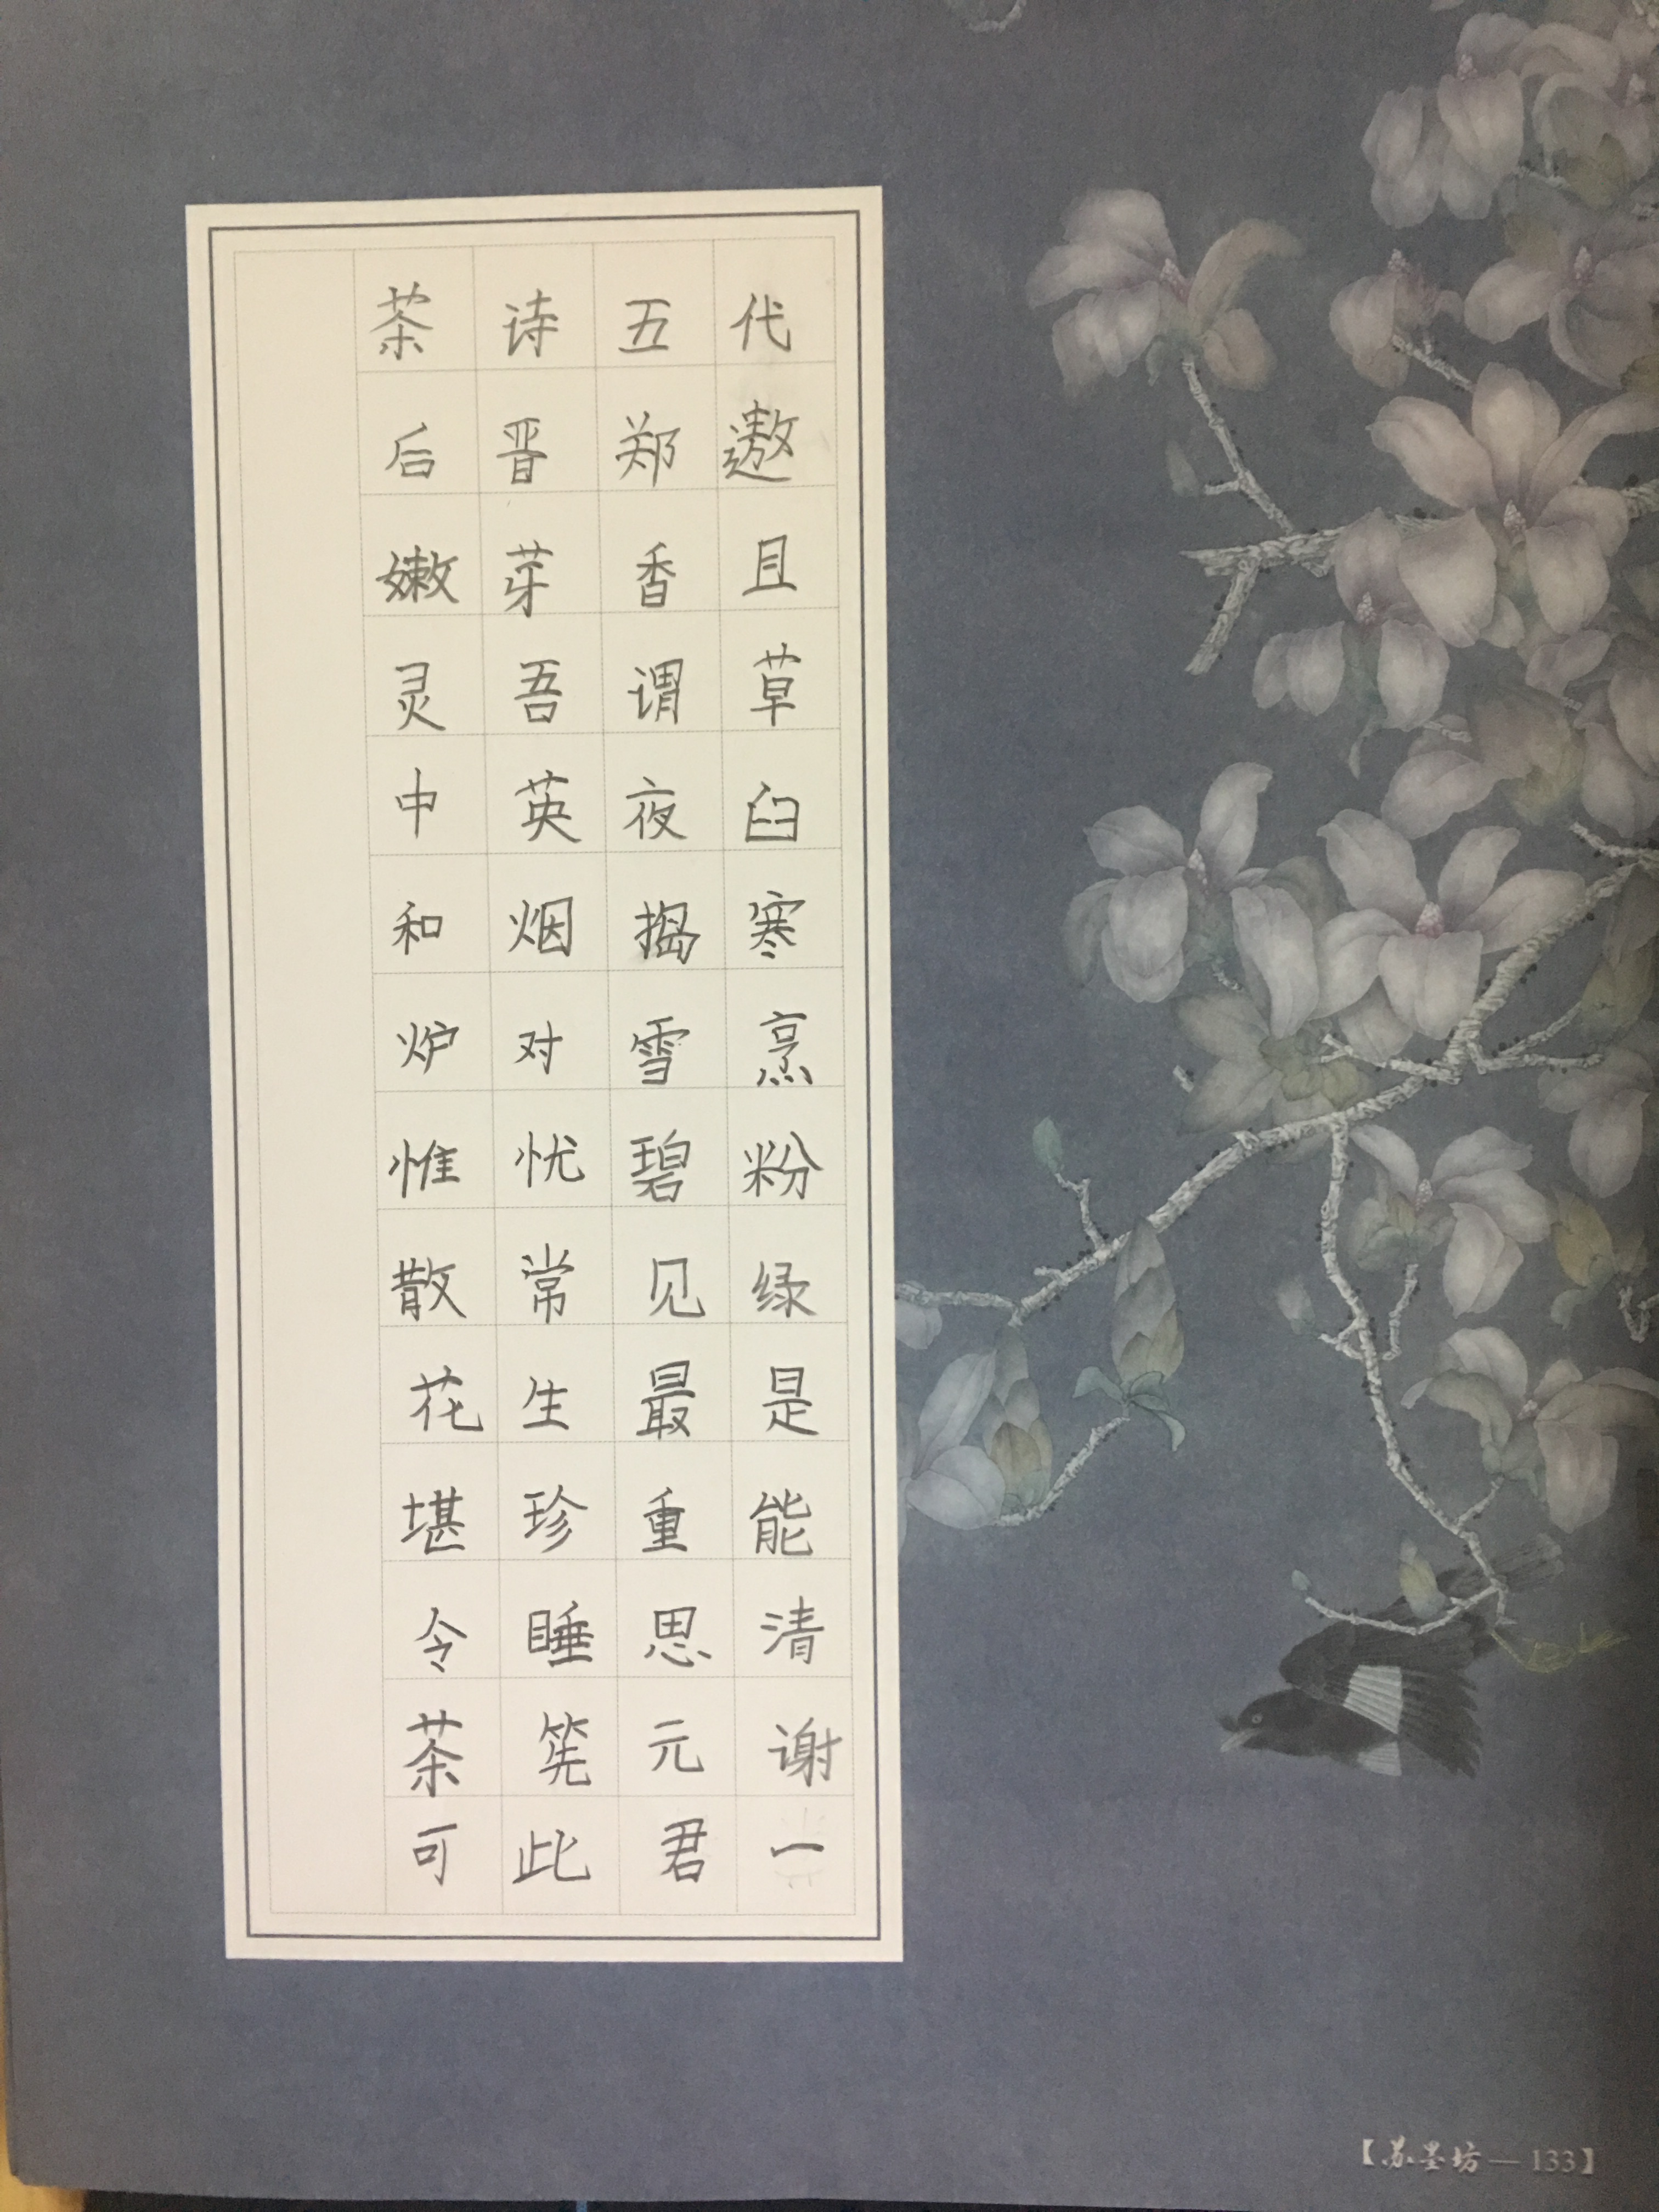 茶诗五代
后晋郑遨
嫩芽香且
灵吾谓草
中英夜臼
和烟捣寒
炉对雪烹
惟忧碧粉
散常见绿
花生最是
堪珍重能
令睡思清
茶筅元谢
可此君一
【苏墨坊—133】